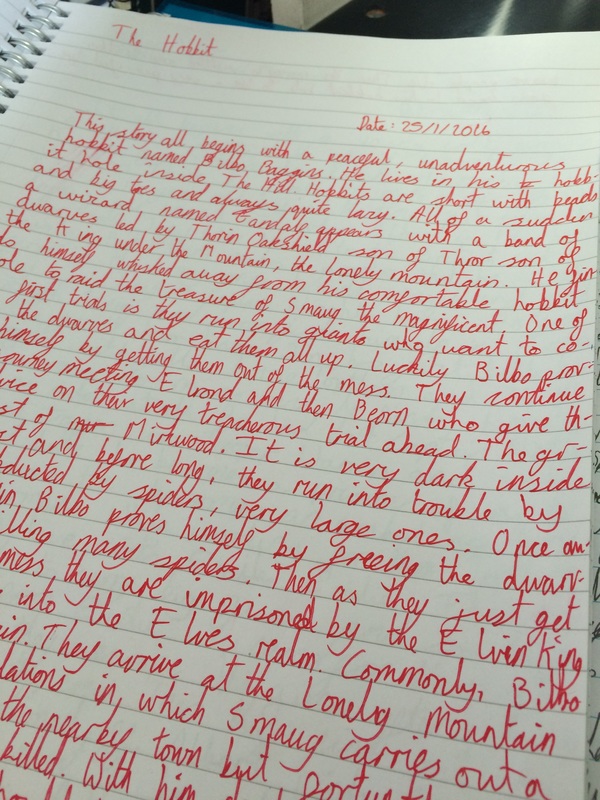 The Hobbit
Date: 25/1/2026
This story all begins with a peaceful, unadventurous
hobbit named Bilbo Baggins. He lives in his hobb-
it hole inside The Hill. Hobbits are short with beads
and big toes and always quite lazy. All of a sudden
a wizard named Gandalf appears with a band of
dwarves led by Thorin Oakshield son of Thror son of
the King under the Mountain, the lonely mountain. He
himself whisked away from his comfortable hobbit
ole to raid the treasure of Smaug the magnificent. One of
first trials is they run into giants who want to co-
the dwarves and eat them all up. Luckily Bilbo prov-
himself by getting them out of the mess. They continue
ourney meeting Elrond and then Beorn who give th-
vice on thar very treacherous trial ahead. The gr-
st of Mirkwood. It is very dark inside
and before long, they run into trouble by
bducted by spiders, very large ones. Once an-
in Bilbo proves himself by freeing the dwarv-
illing many spiders. Then as they just get
mess they are imprisoned by the Elven King
into the Elves realm. Commonly, Bilbo
in. They arrive at the Lonely Mountain
lations in which Smaug carries out a
the nearby town but
killed. With him